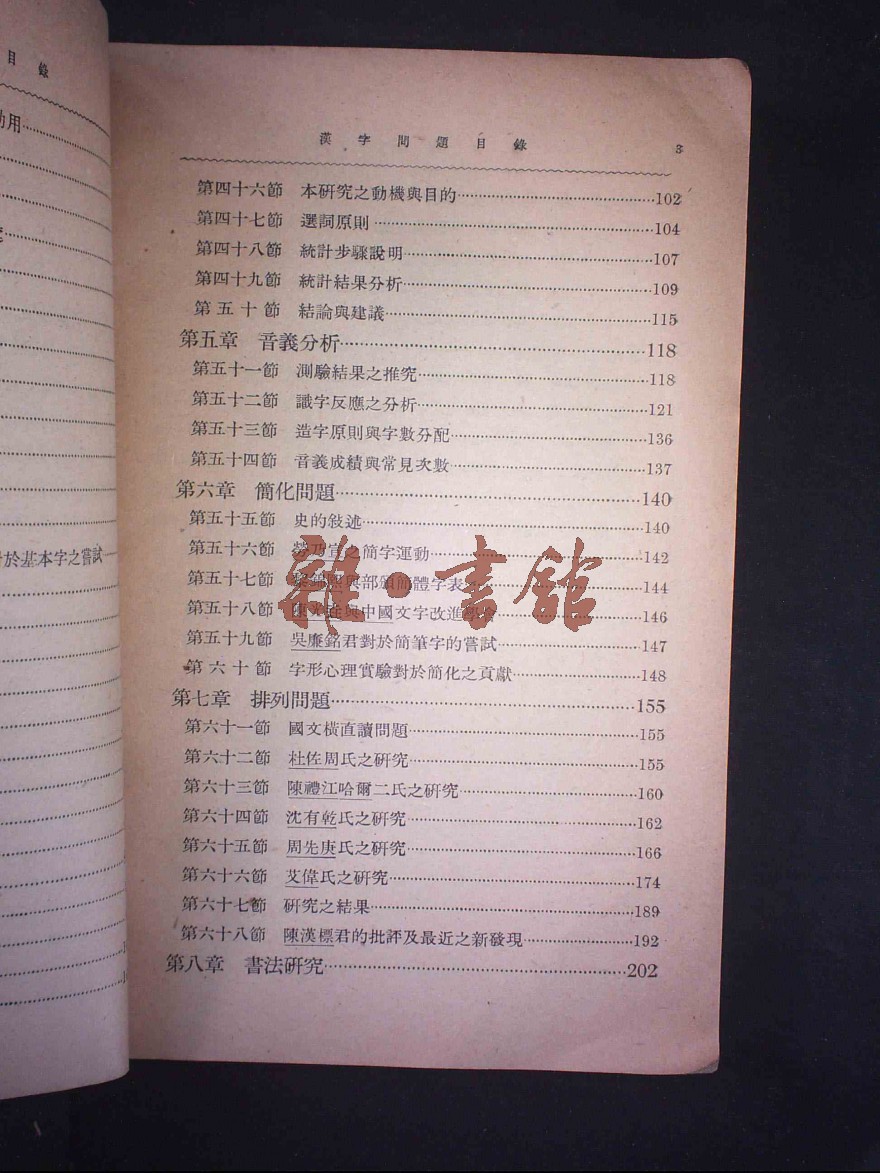 目錄
於基本字之嘗試
漢字問題目錄 3
第四十六節 本研究之動機與目的 102
第四十七節 選詞原則 104
第四十八節 統計步驟說明 107
第四十九節 統計結果分析 109
第五十節 結論與建議 115
第五章 音義分析 118
第五十一節 測驗結果之推究 118
第五十二節 識字反應之分析 121
第五十三節 造字原則與字數分配 136
第五十四節 音義成績與常見次數 137
第六章 簡化問題 140
第五十五節 史的敍述 140
第五十六節 勞乃宣之簡字運動 142
第五十七節 黎錦熙與部頒簡體字表 144
第五十八節 陳光垚與中國文字改進 146
第五十九節 吳廉銘君對於簡筆字的嘗試 147
第六十節 字形心理實驗對於簡化之貢獻 148
第七章 排列問題 155
第六十一節 國文橫直讀問題 155
第六十二節 杜佐周氏之研究 155
第六十三節 陳禮江哈爾二氏之研究 160
第六十四節 沈有乾氏之研究 162
第六十五節 周先庚氏之研究 166
第六十六節 艾偉氏之研究 174
第六十七節 研究之結果 189
第六十八節 陳漢標君的批評及最近之新發現 192
第八章 書法研究 202
雜·書館